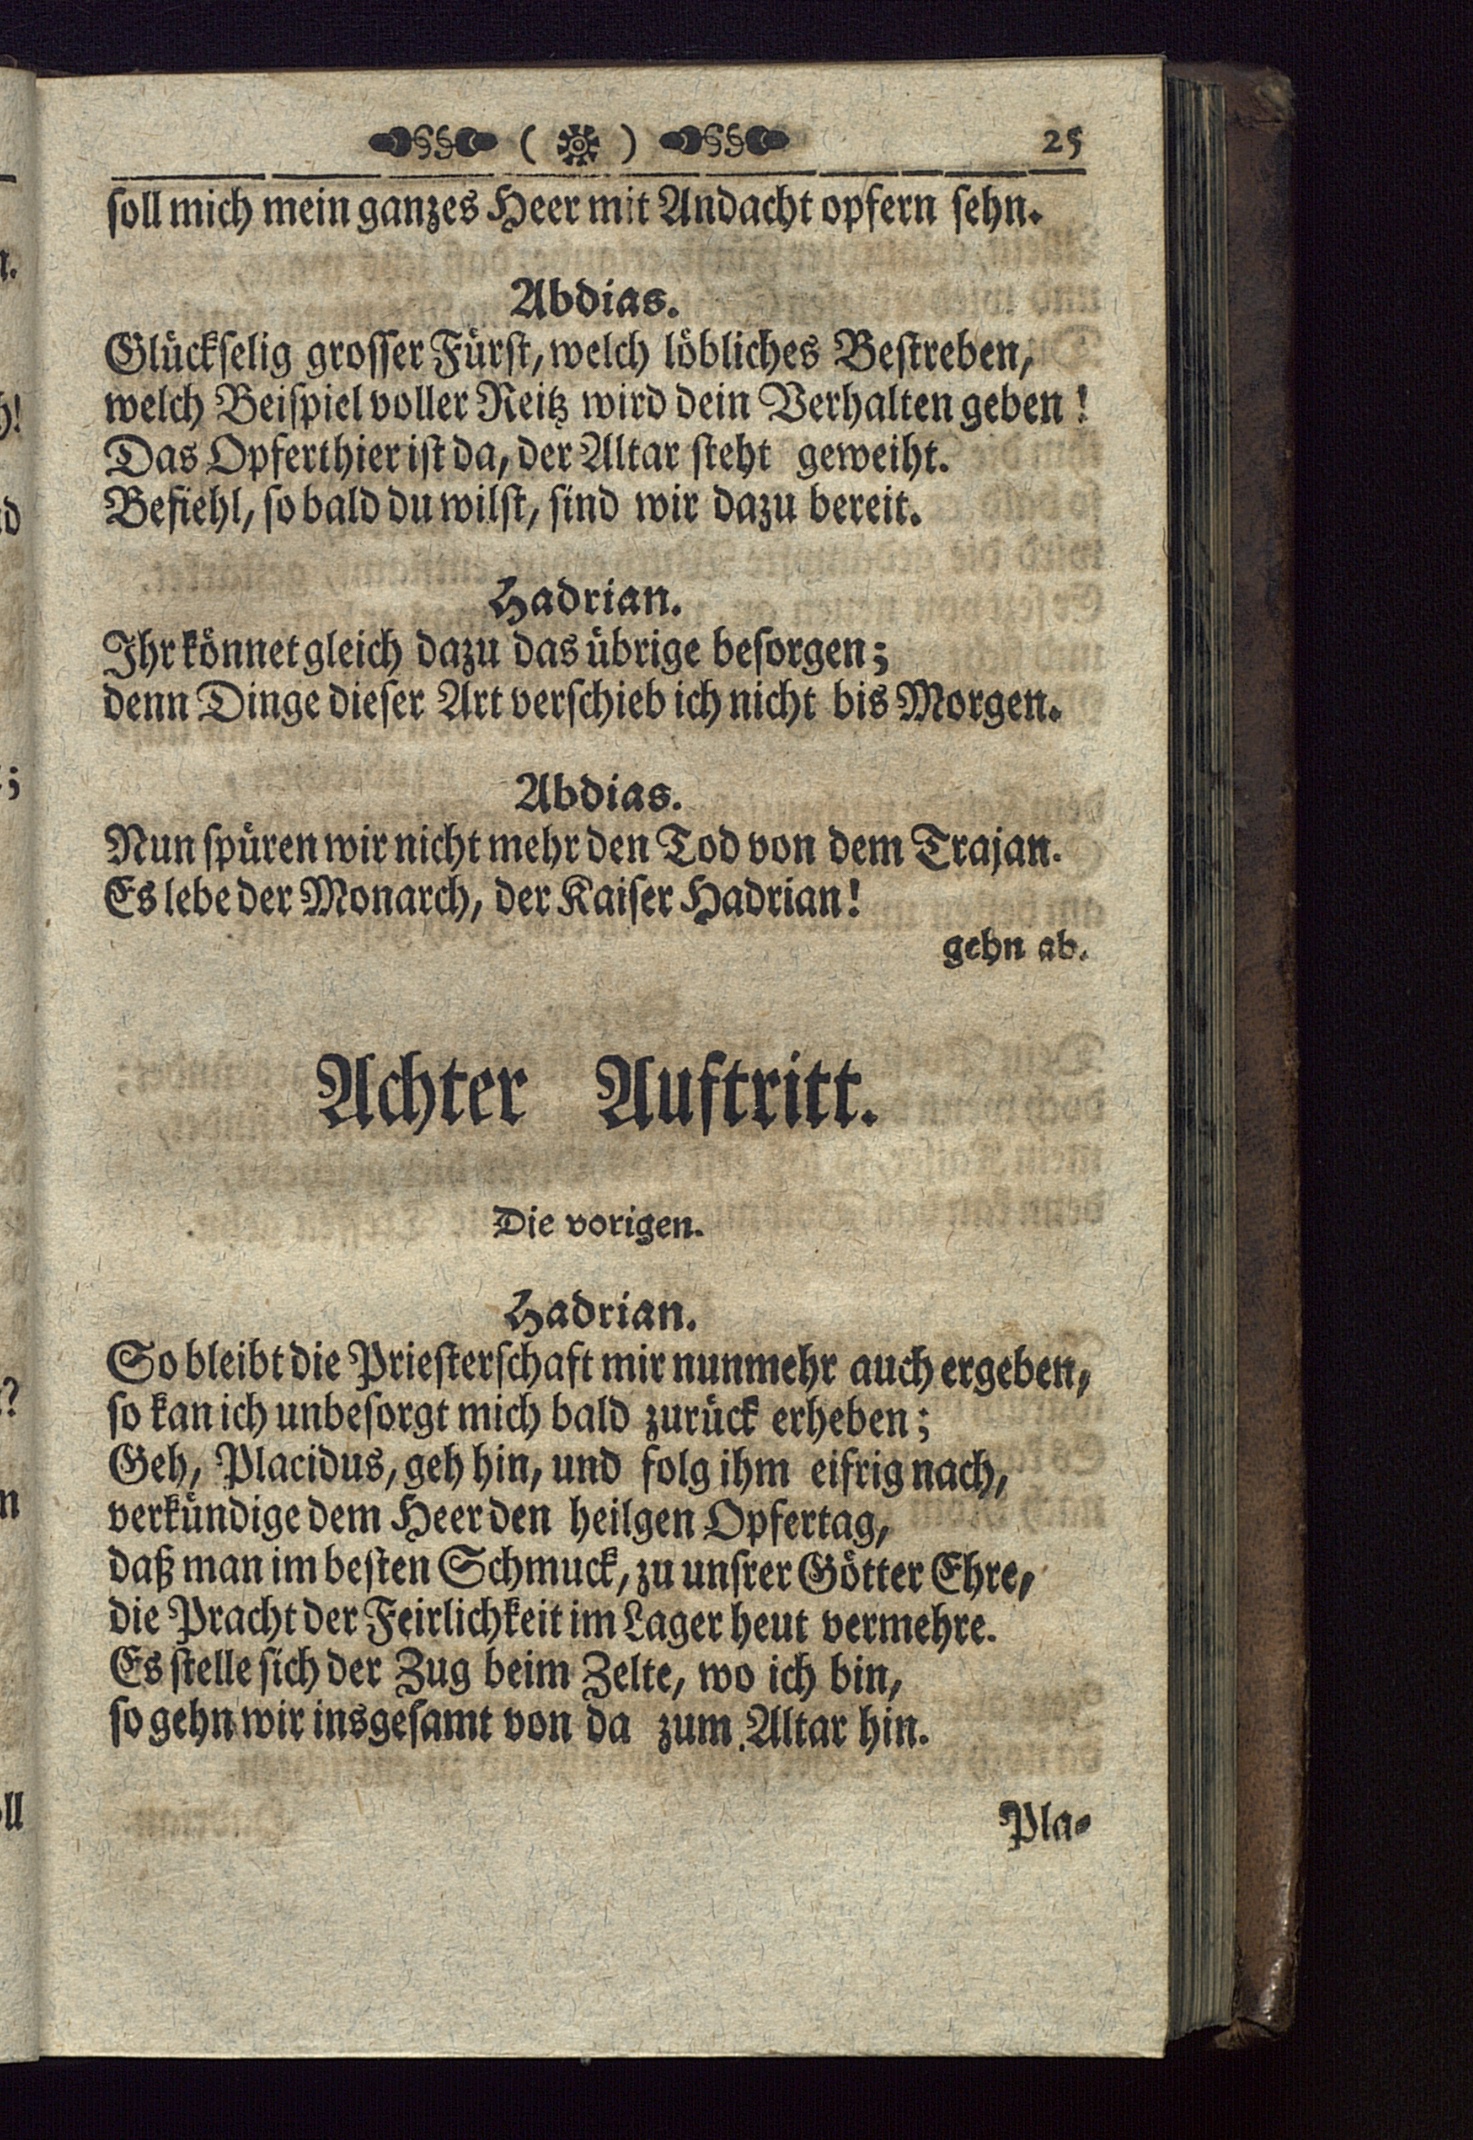 25
soll mich mein ganzes Heer mit Andacht opfern sehn.
Abdias.
Glückselig grosser Fürst, welch löbliches Bestreben,
welch Beispiel voller Reitz wird dein Verhalten geben!
Das Opferthier ist da, der Altar steht geweiht.
Befiehl, so bald du wilst, sind wir dazu bereit.
Hadrian.
Ihr könnet gleich dazu das übrige besorgen;
denn Dinge dieser Art verschieb ich nicht bis Morgen.
Abdias.
Nun spüren wir nicht mehr den Tod von dem Trajan.
Es lebe der Monarch, der Kaiser Hadrian!
gehn ab.
Achter Auftritt.
Die vorigen.
Hadrian.
So bleibt die Priesterschaft mir nunmehr auch ergeben,
so kan ich unbesorgt mich bald zurück erheben;
Geh, Placidus, geh hin, und folg ihm eifrig nach,
verkündige dem Heer den heilgen Opfertag,
daß man im besten Schmuck, zu unsrer Götter Ehre,
die Pracht der Feirlichkeit im Lager heut vermehre.
Es stelle sich der Zug beim Zelte, wo ich bin,
so gehn wir insgesamt von da zum Altar hin.
Pla-